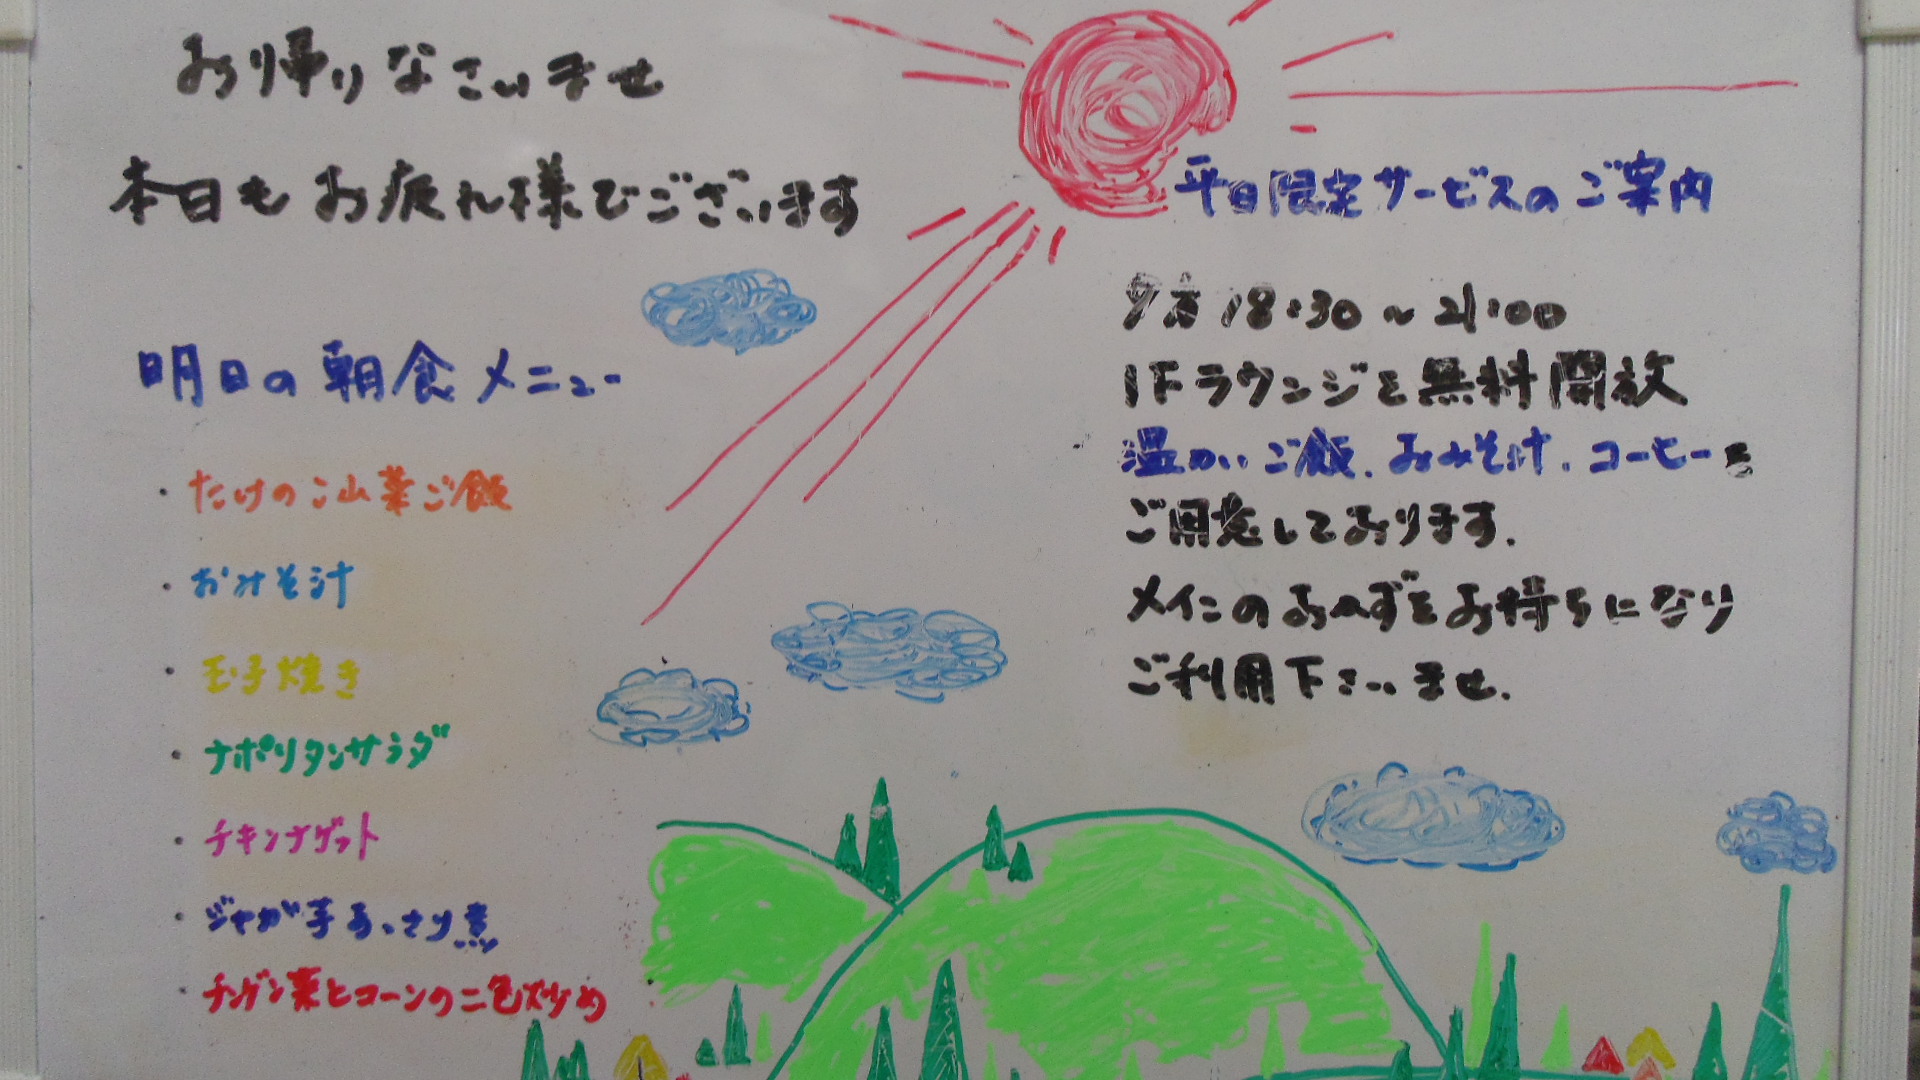 お帰りなさいませ
本日もお疲れ様でございます
明日の朝食メニュー
・たけのこ山菜ご飯
・おみそ汁
・玉子焼き
・ナポリタンサラダ
・チキンナゲット
・ジャガ芋あっさり煮
・チンゲン菜とコーンの二色炒め
平日限定サービスのご案内
夕方 18:30～21:00
1Fラウンジを無料開放
温かいご飯、おみそ汁、コーヒーを
ご用意しております。
メインのおかずをお持ちになり
ご利用下さいませ。